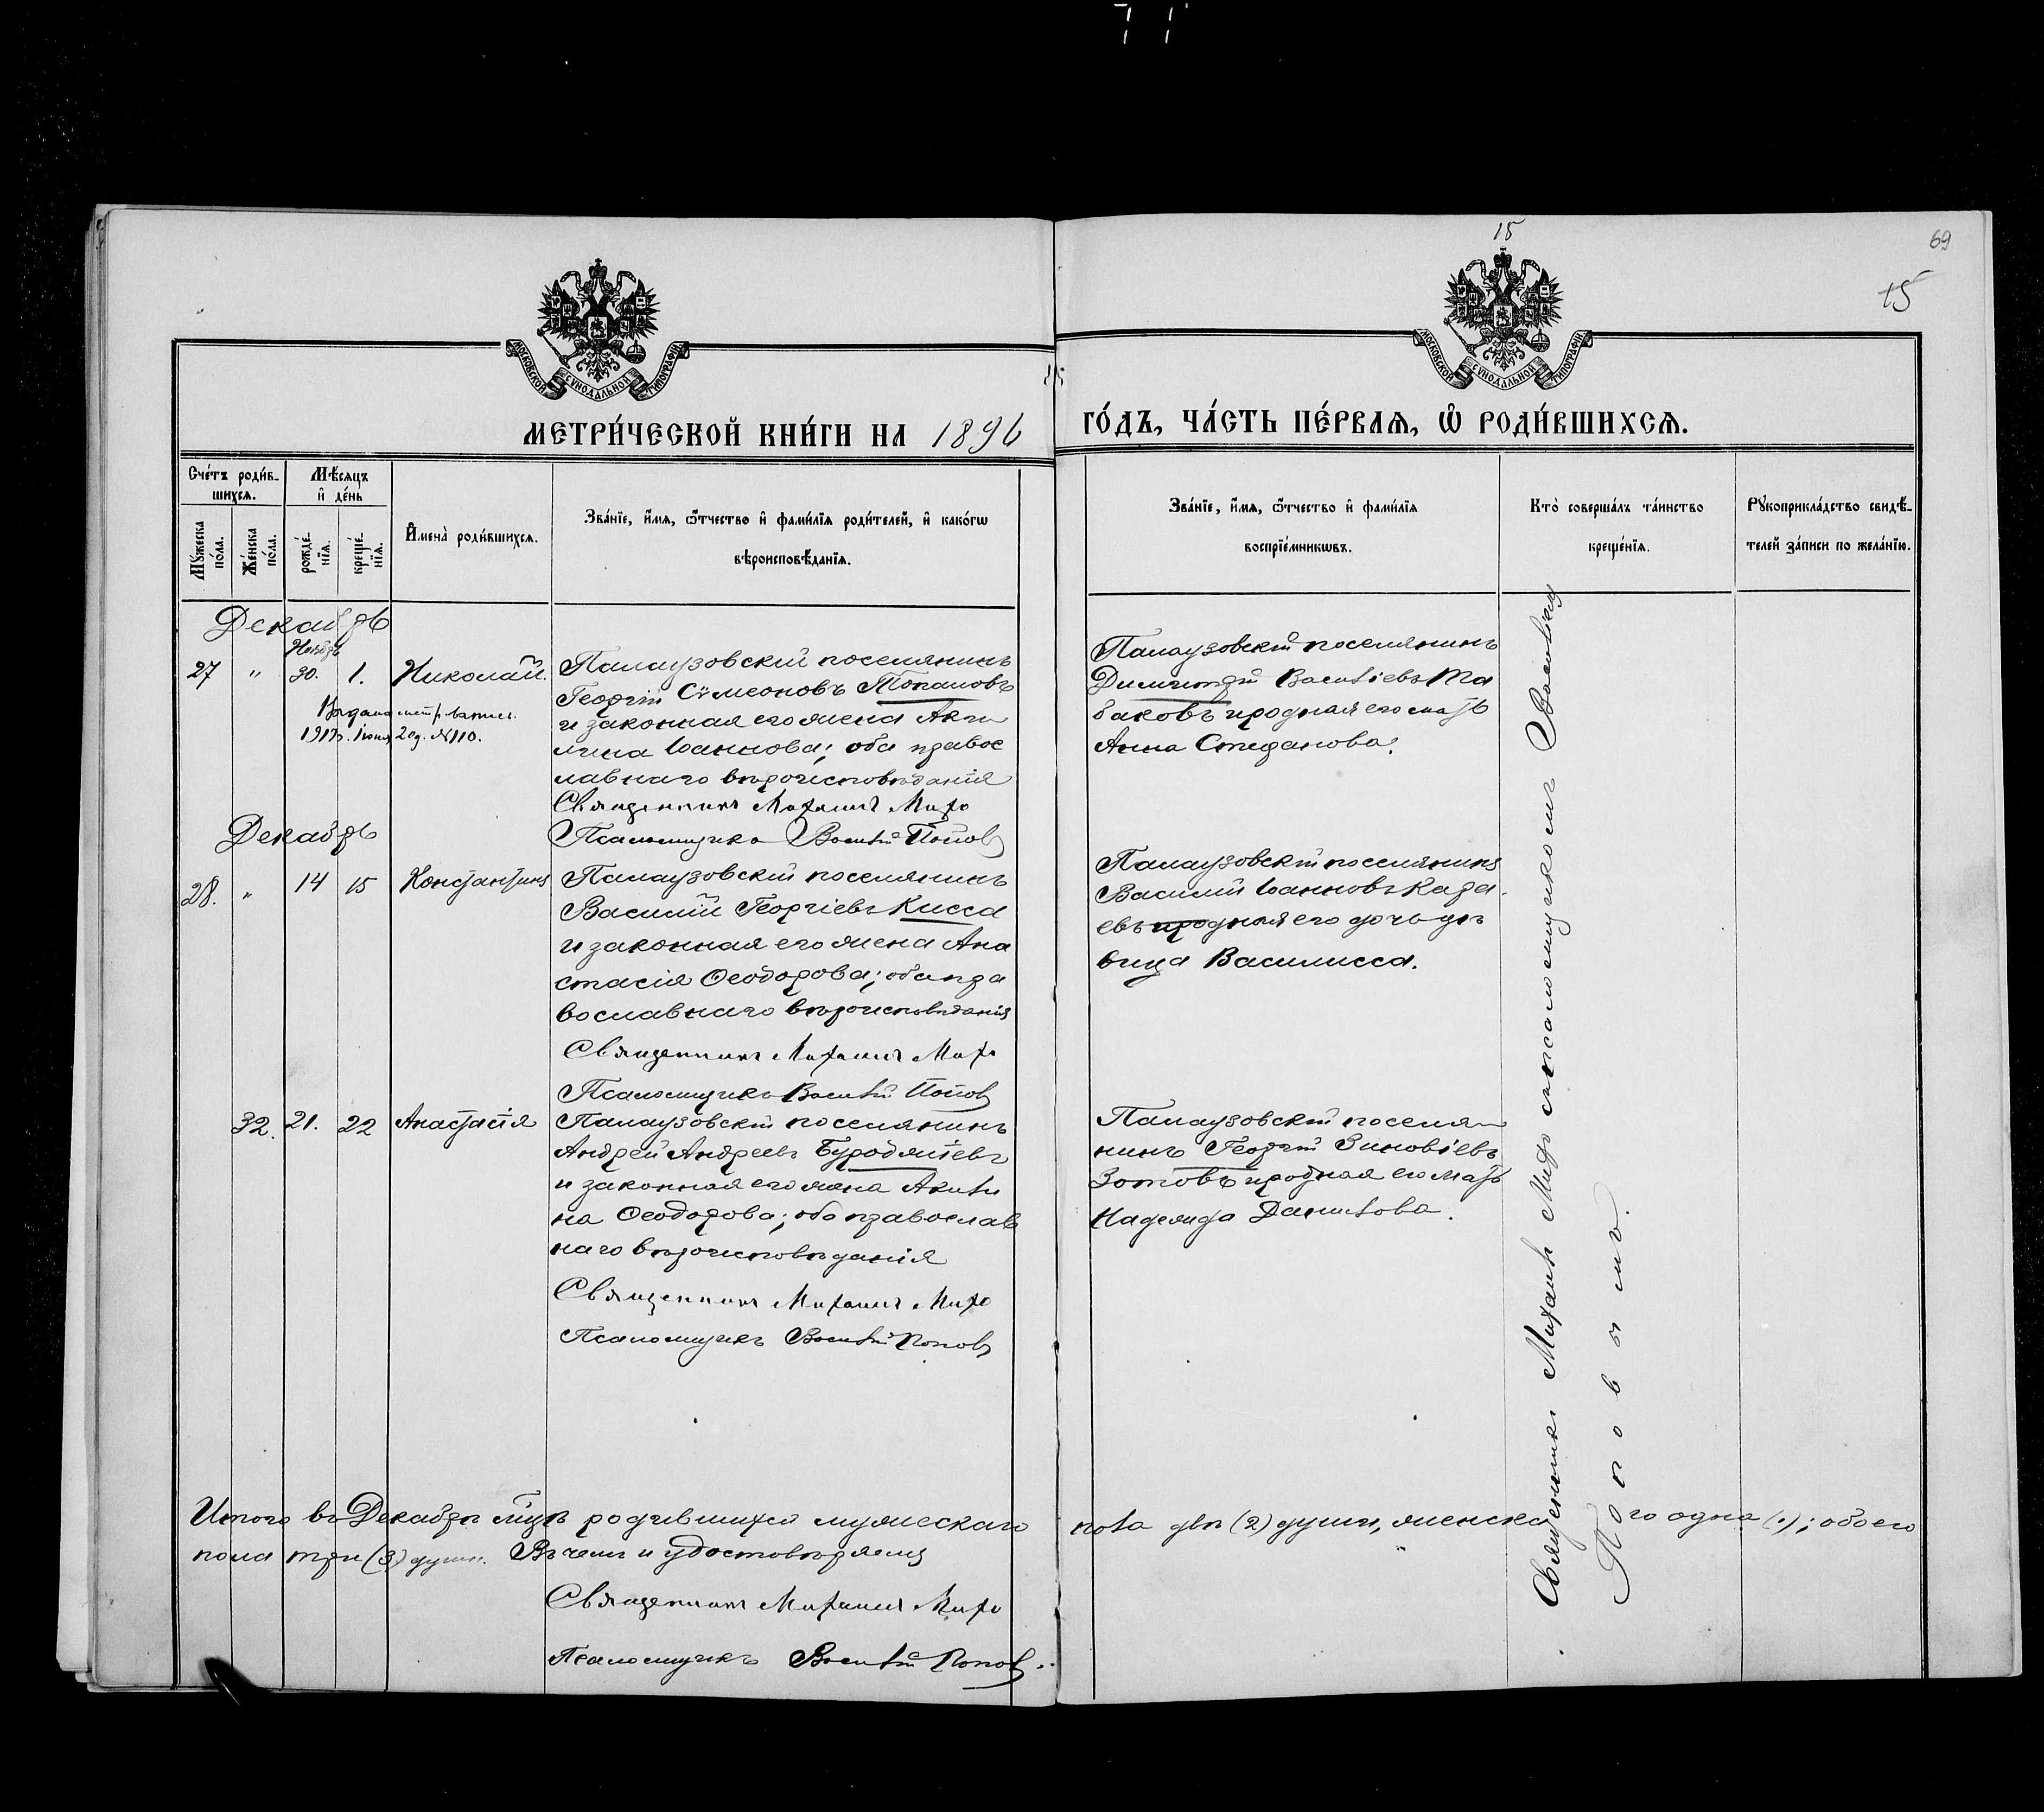 15
69
15
МОСКОВСКОЙ СѴНОДАЛЬНОЙ ТИПОГРАФІИ
МОСКОВСКОЙ СѴНОДАЛЬНОЙ ТИПОГРАФІИ
МЕТРИ́ЧЕСКОЙ КНИ́ГИ НА 1896
ГО́ДЪ, ЧА́СТЬ ПЕ́РВАѦ, Ѡ҆ РОДИ́ВШИХСѦ.
Сче́тъ роди́в-
шихсѧ.
Мѣ́сѧцъ
и҆ де́нь
Мꙋ́жеска
по́ла.
Же́нска
по́ла.
рожде́-
нїѧ.
креще́-
нїѧ.
И҆мена̀ роди́вшихсѧ.
Зва́нїе, и҆́мѧ, ѻ҆́тчество и҆ фами́лїѧ роди́телей, и҆ како́гѡ
вѣроисповѣ́данїѧ.
Зва́нїе, и҆́мѧ, ѻ҆́тчество и҆ фами́лїѧ
воспрїе́мникѡвъ.
Кто̀ соверша́лъ та́инство
креще́нїѧ.
Рꙋкоприкла́дство свидѣ́-
телей за́писи по жела́нїю.
Декабрь
Ноябрь
27 " 30. 1. Николай.
Выдана метр. выпис.
1917г. Іюня 2 д. №110.
Палаузовскій поселянинъ
Георгій Сѵмеоновъ Топаловъ
и законная его жена Аки
лина Іоаннова; оба правос
лавнаго вѣроисповѣданія
Священникъ Михаилъ Михо
Псаломщикъ Василій Попов
Палаузовскій поселянинъ
Димитрій Васильевъ Та
баковъ и родная его мать
Анна Стефанова.
Декабрь
28. " 14 15 Константинъ
Палаузовскій поселянинъ
Василій Георгіевъ Кисса
и законная его жена Ана
стасія Ѳеодорова; оба пра
вославнаго вѣроисповѣданія
Священникъ Михаилъ Михо
Псаломщикъ Василій Попов
Палаузовскій поселянинъ
Василій Іоанновъ Кара
евъ и родная его дочь дѣ
вица Василисса.
32. 21. 22 Анастасія
Палаузовскій поселянинъ
Андрей Андреевъ
и законная его жена Акили
на Ѳеодорова; оба православ
наго вѣроисповѣданія
Священникъ Михаилъ Михо
Псаломщикъ Василій Попов
Палаузовскій поселя
нинъ Георгій Зиновіевъ
Зотовъ и родная его мать
Надежда Данилова.
Священникъ Михаилъ Михо съ псаломщикомъ Василіемъ
Поповымъ.
Итого въ Декабрѣ м͠цѣ родившихся мужескаго
пола двѣ (2) души, женскаго одна (1); обоего
пола три (3) души. Въ чемъ и удостовѣряемъ
Священникъ Михаилъ Михо
Псаломщикъ Василій Попов.